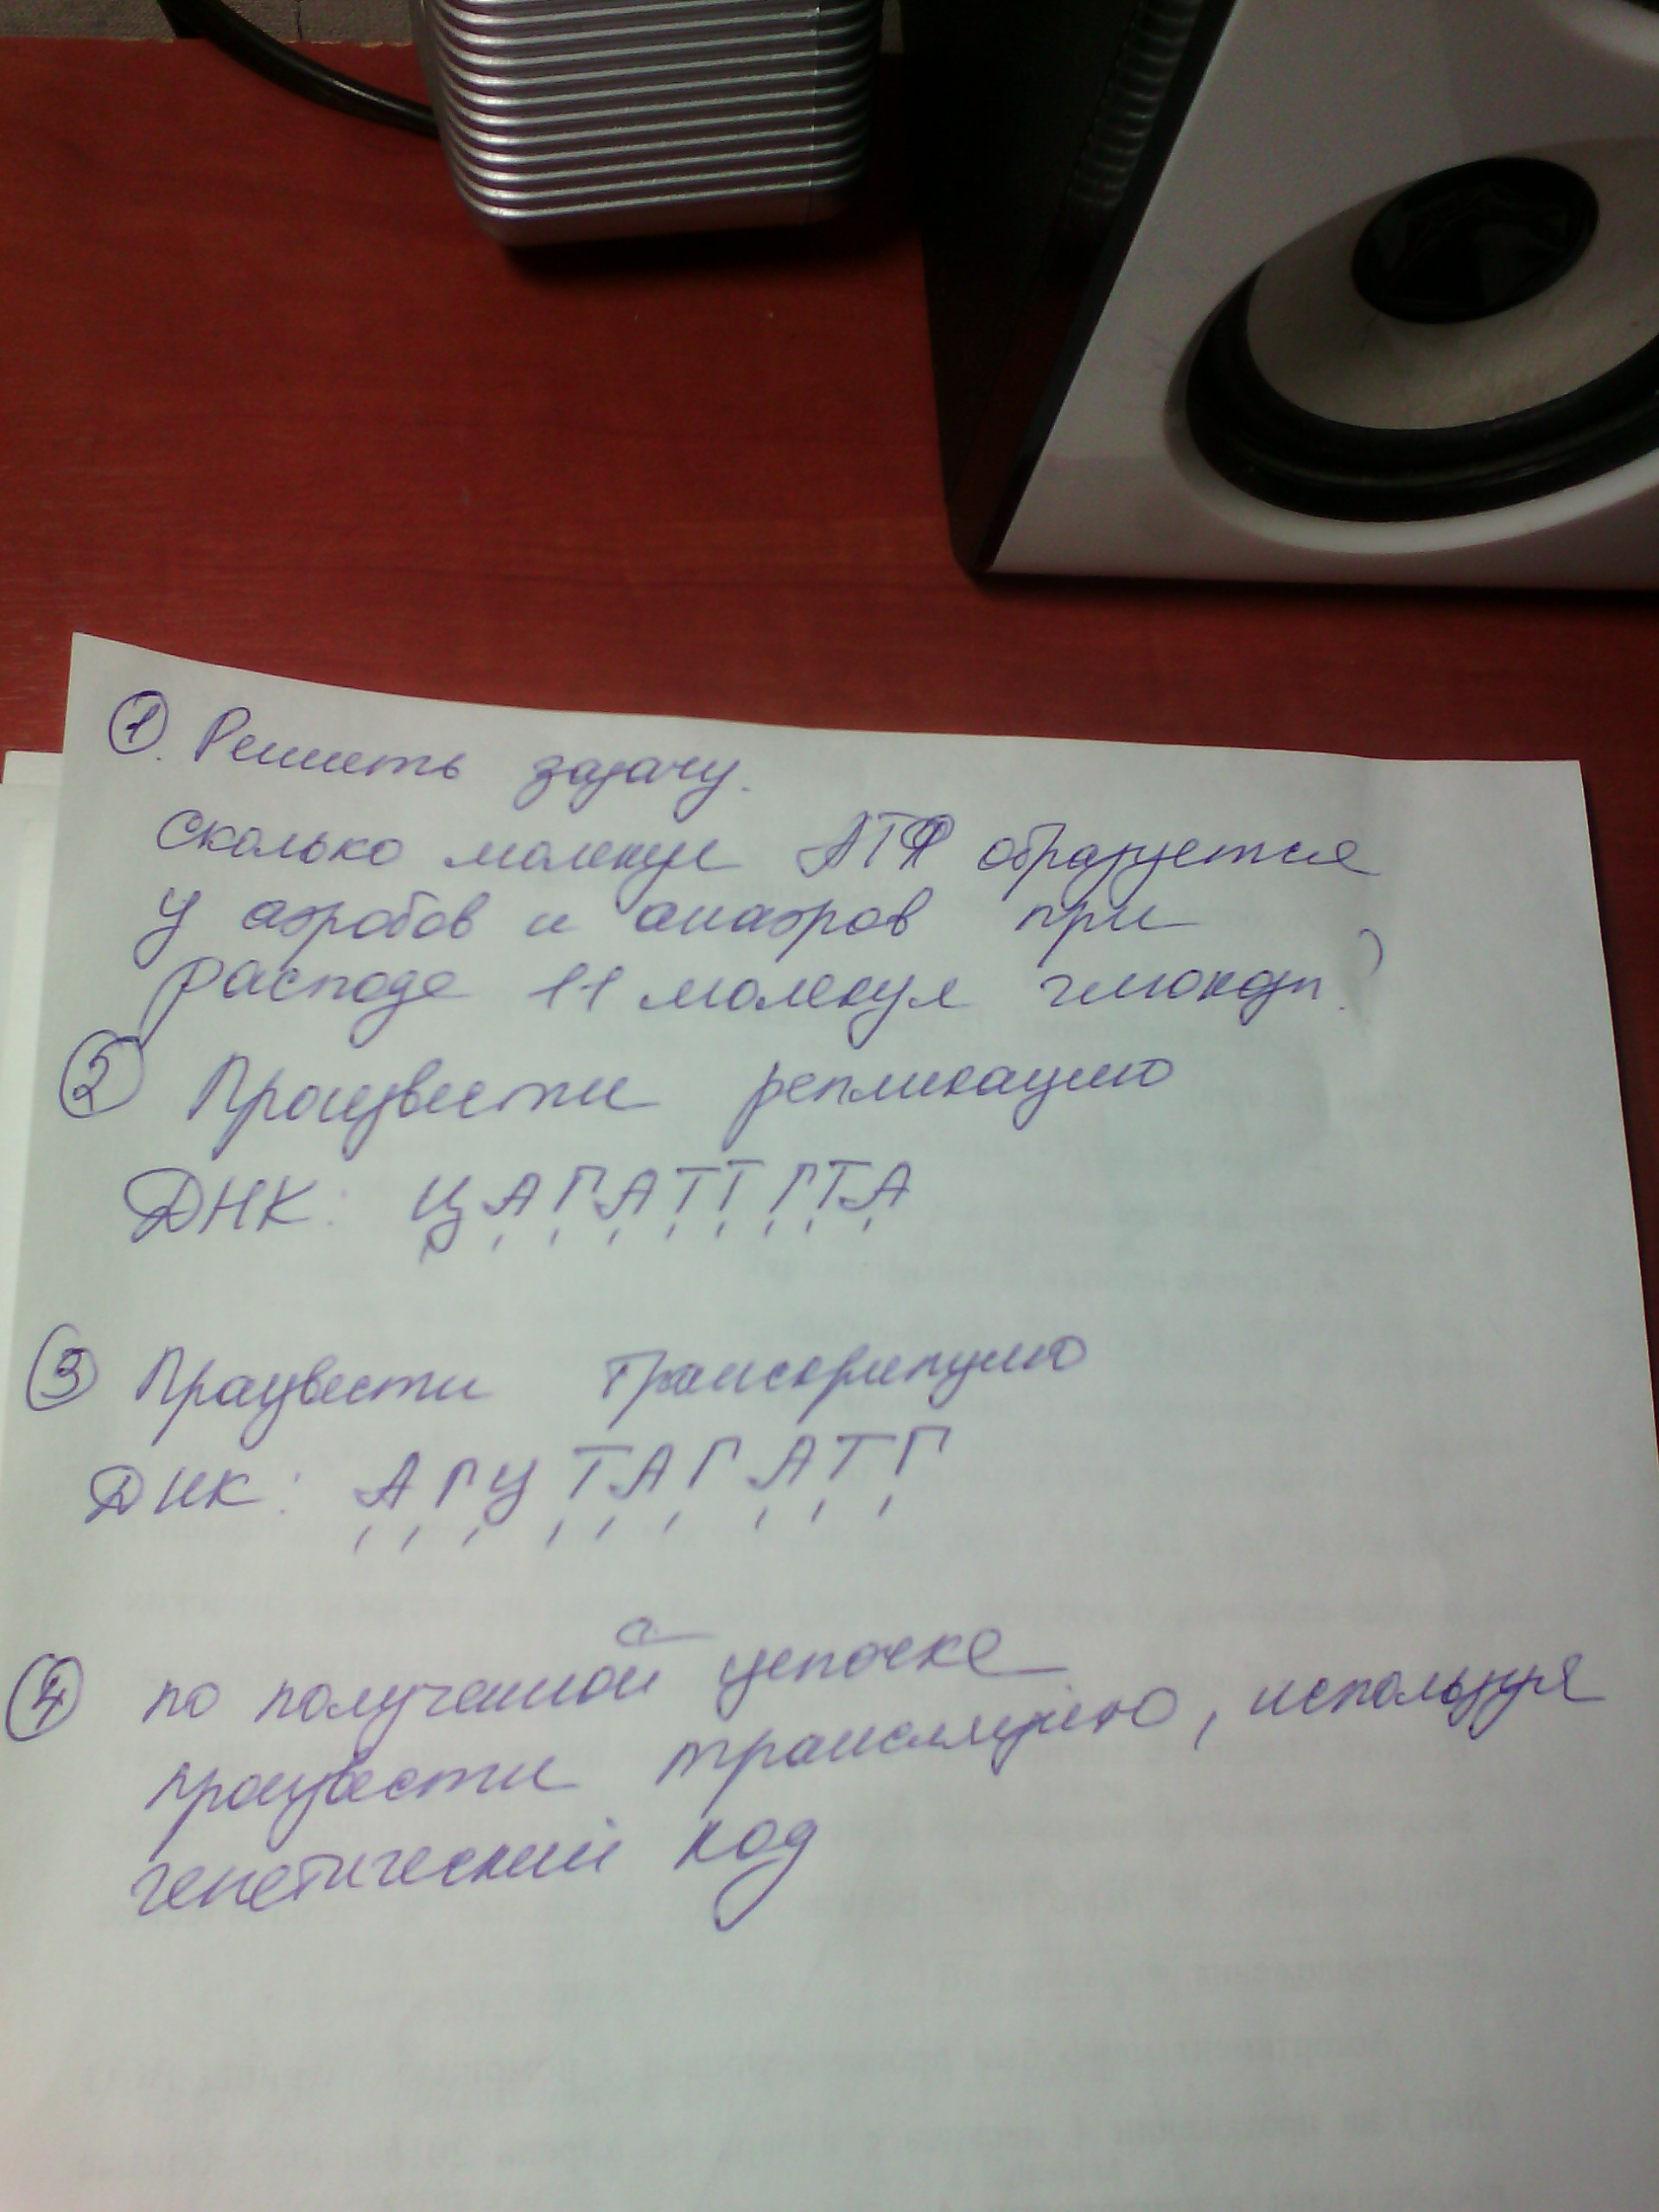 ① Решить задачу.
Сколько молекул АТФ образуется
у аэробов и анаэров при
распаде 11 молекул глюкозы?
② Произвести репликацию
ДНК: ЦАГАТТГТА
③ Произвести транскрипцию
ДНК: АГЦТАГАТГ
④ по полученной цепочке
произвести трансляцию, используя
генетический код